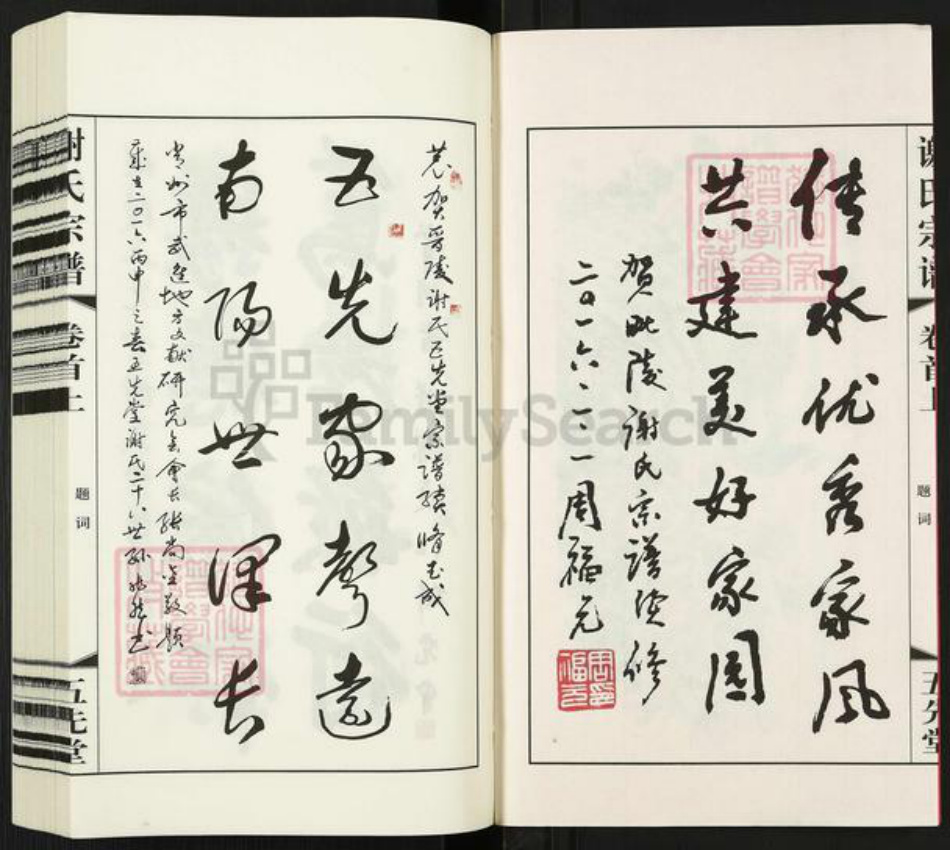 谢氏宗谱
卷首上
题词
五先堂
传承优秀家风
共建美好家园
贺毗陵谢氏宗谱续修
二〇一六·二·一 周福元
恭贺晋陵谢氏五先堂宗谱续修告成
五先家声远
南阳世泽长
常州市武进地方文献研究会会长张尚金敬题
岁在二〇一六丙申之春五先堂谢氏二十八世孙
谢氏宗谱
卷首上
题词
五先堂
FamilySearch